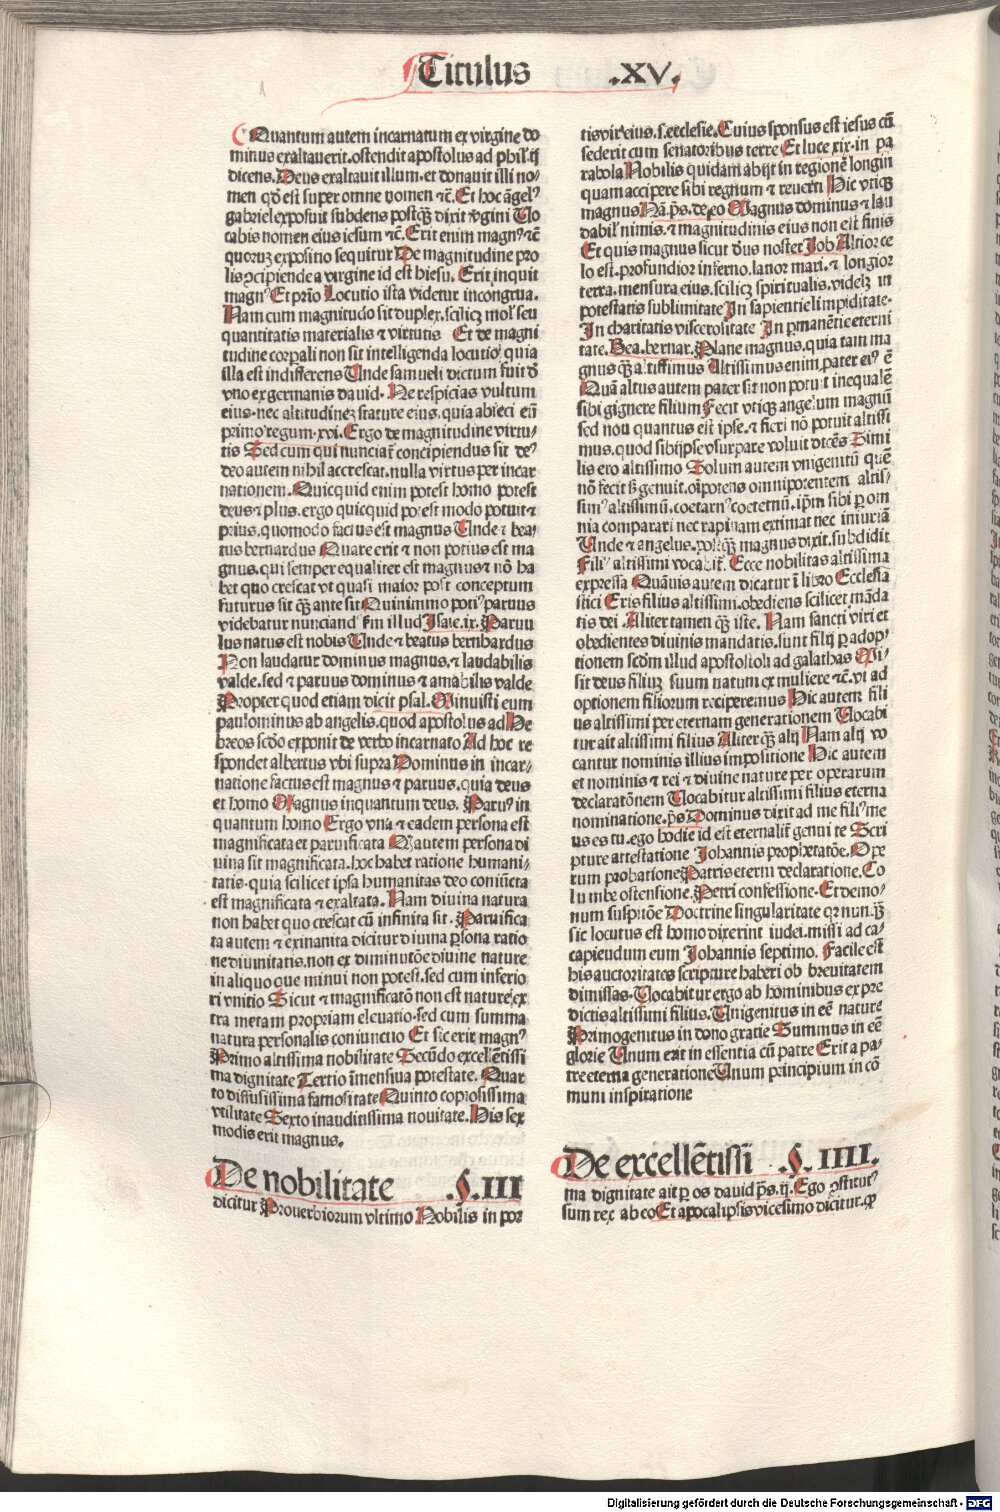 Titulus .XV.
Quantum autem incarnatum ex virgine do
minus exaltauerit.ostendit apostolus ad phil.ij
dicens.Deus exaltauit illum.et donauit illi no/
men qd̓ est super omne nomen ⁊c̄.Et hoc āgelꝰ
gabriel exposuit subdens postqꝫ dixit v̓gini Uo
cabis nomen eius iesum ⁊c̄.Erit enim magnꝰ⁊c̄
quorum expositio sequitur De magnitudine pro
lis ꝯcipiende a virgine id est hiesu.Erit inquit
magnꝰ Et prīo Locutio ista videtur incongrua.
Nam cum magnitudo sit duplex.scilicꝫ mol̓ seu
quantitatis materialis ⁊ virtutis Et de magni
tudine corpali non sit intelligenda locutio.quia
illa est indifferens Unde samueli dictum fuit d̓
vno ex germanis dauid.Ne respicias vultum
eius.nec altitudineꝫ stature eius.quia abieci eū
primo regum.xvi.Ergo de magnitudine virtu/
tis Sed cum qui nunciat̄ concipiendus sit deꝰ
deo autem nihil accrescat.nulla virtus per incar
nationem.Quicquid enim potest homo potest
deus ⁊ plus.ergo quicquid potest modo potuit ⁊
prius.quomodo factus est magnus Unde ⁊ bea/
tus bernardus Quare erit ⁊ non potius est ma
gnus.qui semper equaliter est magnus ⁊ nō ha
bet quo crescat vt quasi maior post conceptum
futurus sit qꝫ ante sit Quinimmo potiꝰ paruus
videbatur nunciand̓ fm̄ illud Isaie.ix.Paruu
lus natus est nobis Unde ⁊ beatus bernhardus
Non laudatur dominus magnus.⁊ laudabilis
valde.sed ⁊ paruus dominus ⁊ amabilis valde
Propter quod etiam dicit psal.Minuisti eum
paulominus ab angelis.quod apostolus ad He
breos scdo exponit de verbo incarnato Ad hoc re
spondet albertus vbi supra Dominus in incar/
natione factus est magnus ⁊ paruus.quia deus
et homo Magnus inquantum deus.Paruꝰ in
quantum homo Ergo vna ⁊ eadem persona est
magnificata et paruificata Q autem persona di
uina sit magnificata.hoc habet ratione humani/
tatis.quia scilicet ipsa humanitas deo coniūcta
est magnificata ⁊ exaltata.Nam diuina natura
non habet quo crescat cū infinita sit.Paruifica
ta autem ⁊ exinanita dicitur diuina ꝑsona ratio
ne diuinitatis.non ex diminutōe diuine nature
in aliquo que minui non potest.sed cum inferio
ri vnitio Sicut ⁊ magnificatō non est nature ex
tra metam propriam eleuatio.sed cum summa
natura personalis coniunctio Et sic erit magnꝰ
Primo altissima nobilitate Secūdo excellētissi
ma dignitate Tertio īmensiua potestate.Quar
to diffusissima famositate Quinto copiosissima
vtilitate Sexto inauditissima nouitate.His sex
modis erit magnus.
De nobilitate .§.III
dicitur Prouerbiorum vltimo Nobilis in por
tis vir eius.s.ecclesie.Cuius sponsus est iesus cū
sederit cum senatoribus terre Et luce xix.in pa
rabola Nobilis quidam abijt in regionē longin
quam accipere sibi regnum ⁊ reuerti Hic vtiqꝫ
magnus Nā.ps̄.de eo Magnus dominus ⁊ lau
dabil̓ nimis.⁊ magnitudinis eius non est finis
Et quis magnus sicut d̓us noster Job Altior ce
lo est.profundior inferno.latior mari.⁊ longior
terra.mensura eius.scilicꝫ spiritualis.videlꝫ in
potestatis sublimitate In sapientie limpiditate.
In charitatis viscerositate In ꝑmanētie eterni
tate.Bea.bernar.Plane magnus.quia tam ma
gnus qꝫ altissimus Altissimus enim pater eiꝰ ē
Quā altus autem pater sit non potuit inequalē
sibi gignere filium Fecit vtiqꝫ angelum magnū
sed non quantus est ipse.⁊ fieri nō potuit altissi
mus.quod sibiipse vsurpare voluit dicēs Simi
lis ero altissimo Solum autem vnigenitū quē
nō fecit sꝫ genuit.oīpotens omnipotentem altis/
simꝰ altissimū.coetarnꝰ coeternū.ipm̄ sibi ꝑ om
nia comparari nec rapinam extimat nec iniuriā
Unde ⁊ angelus.postqꝫ magnus dixit.subdidit
Filiꝰ altissimi vocabit̄.Ecce nobilitas altissima
expressa Quāuis autem dicatur ī libro Ecclesia
stici Eris filius altissimi.obediens scilicet māda
tis dei.Aliter tamen qꝫ iste.Nam sancti viri et
obedientes diuinis mandatis.sunt filij ꝑ adop/
tionem scdm̄ illud apostoli ad galathas Mi/
sit deus filiuꝫ suum natum ex muliere ⁊c̄.vt ad
optionem filiorum reciperemus Hic autem fili
us altissimi per eternam generationem Uocabi
tur ait altissimi filius Aliter qꝫ alij Nam alij vo
cantur nominis illius impositione Hic autem
et nominis ⁊ rei ⁊ diuine nature per operarum
declaratōnem Uocabitur altissimi filius eterna
nominatione.ps̄.Dominus dixit ad me filiꝰ me
us es tu.ego hodie id est eternalit̄ genui te Scri
pture attestatione Johannis prophetatōe.Ope
rum probatione Patris eterni declaratione.Co
lumbe ostensione.Petri confessione.Et demo/
num suspitōe Doctrine singularitate qꝛ nunqꝫ
sic locutus est homo dixerint iudei.missi ad ca/
capiendum eum Johannis septimo.Facile est
his auctoritates scripture haberi ob breuitatem
dimissas.Uocabitur ergo ab hominibus ex pre
dictis altissimi filius.Unigenitus in eē nature
Primogenitus in dono gratie Summus in eē
glorie Unum erit in essentia cū patre Erit a pa/
tre eterna generatione Unum principium in cō
muni inspiratione
De excellētissi .§.IIII.
ma dignitate ait ꝑ os dauid ps̄.ij.Ego ꝯstitutꝰ
sum rex ab eo Et apocalipsis vicesimo dicitur.ꝙ
Digitalisierung gefördert durch die Deutsche Forschungsgemeinschaft - DFG